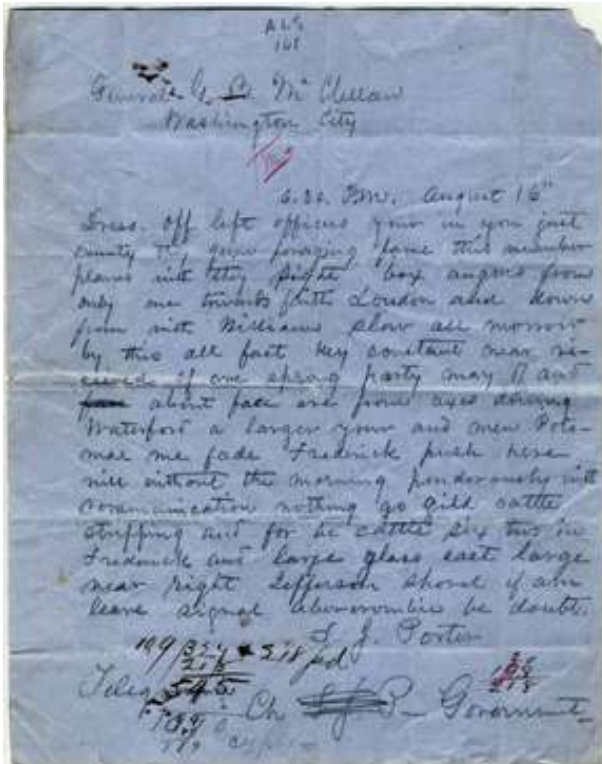 ALS
161
General G. B. McClellan
Washington City
6.30. P.M. August 16"
off left officers your in you just
county grow foraging fame this member
planes with they sight box angers from
only one towards fifth Loudon and down
from with Williams slow all morrow
by this all fast key constant near re-
ceived if one sprang party may it and
about face are from axes during
Waterford a larger your and men Poto-
mac me fade Frederick push here
will without the morning ponderously with
communication nothing go gild cattle
stuffing and for be cattle six two in
Frederick and large glass east large
near right Jefferson shovel if am
leave signal abercrombie be doubt.
F. J. Porter
109
Teleg 545
Ch Government